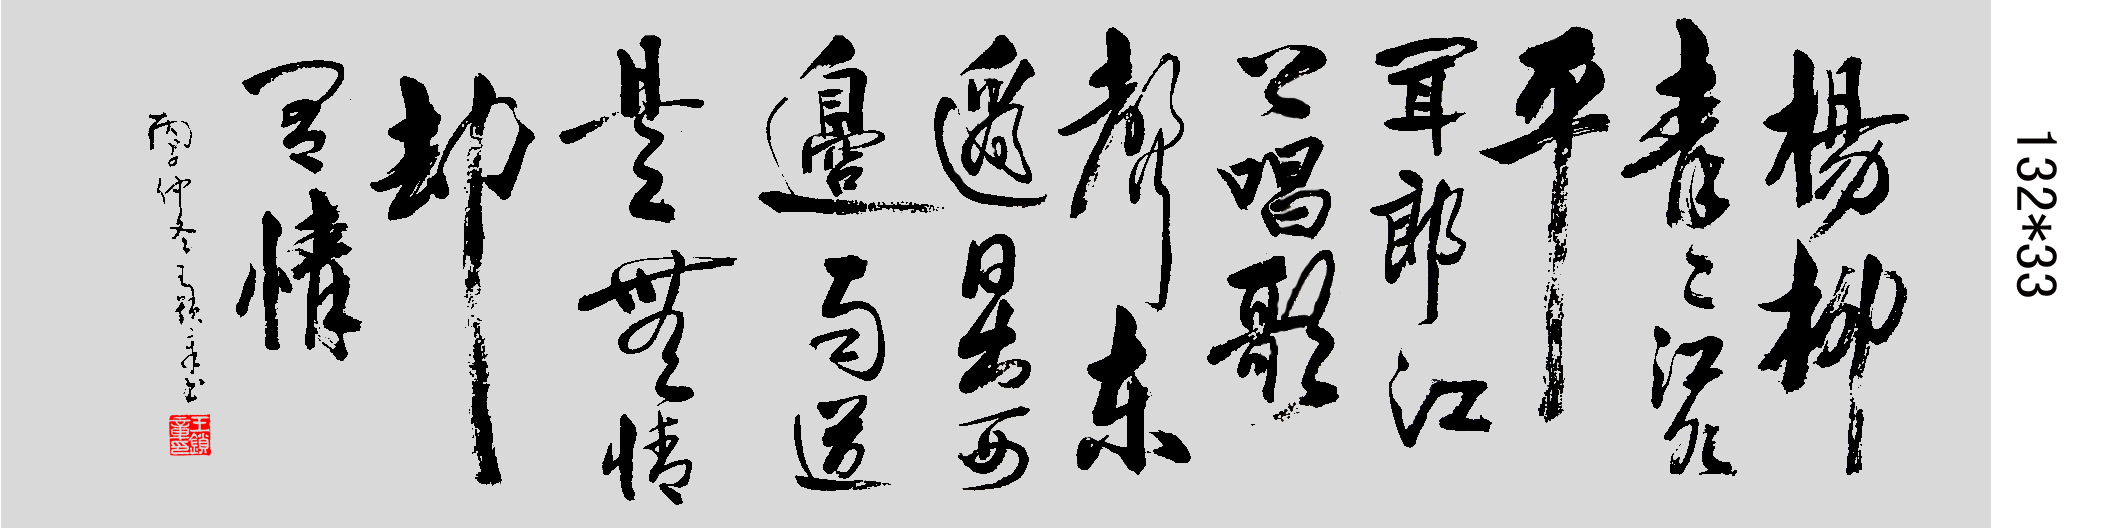 132*33
楊柳
青々江水
平
聞郎江
上唱歌
聲東
邊日出西
邊雨道
是無情
却
有情
丙子仲冬王鎖童书
王鎖童印